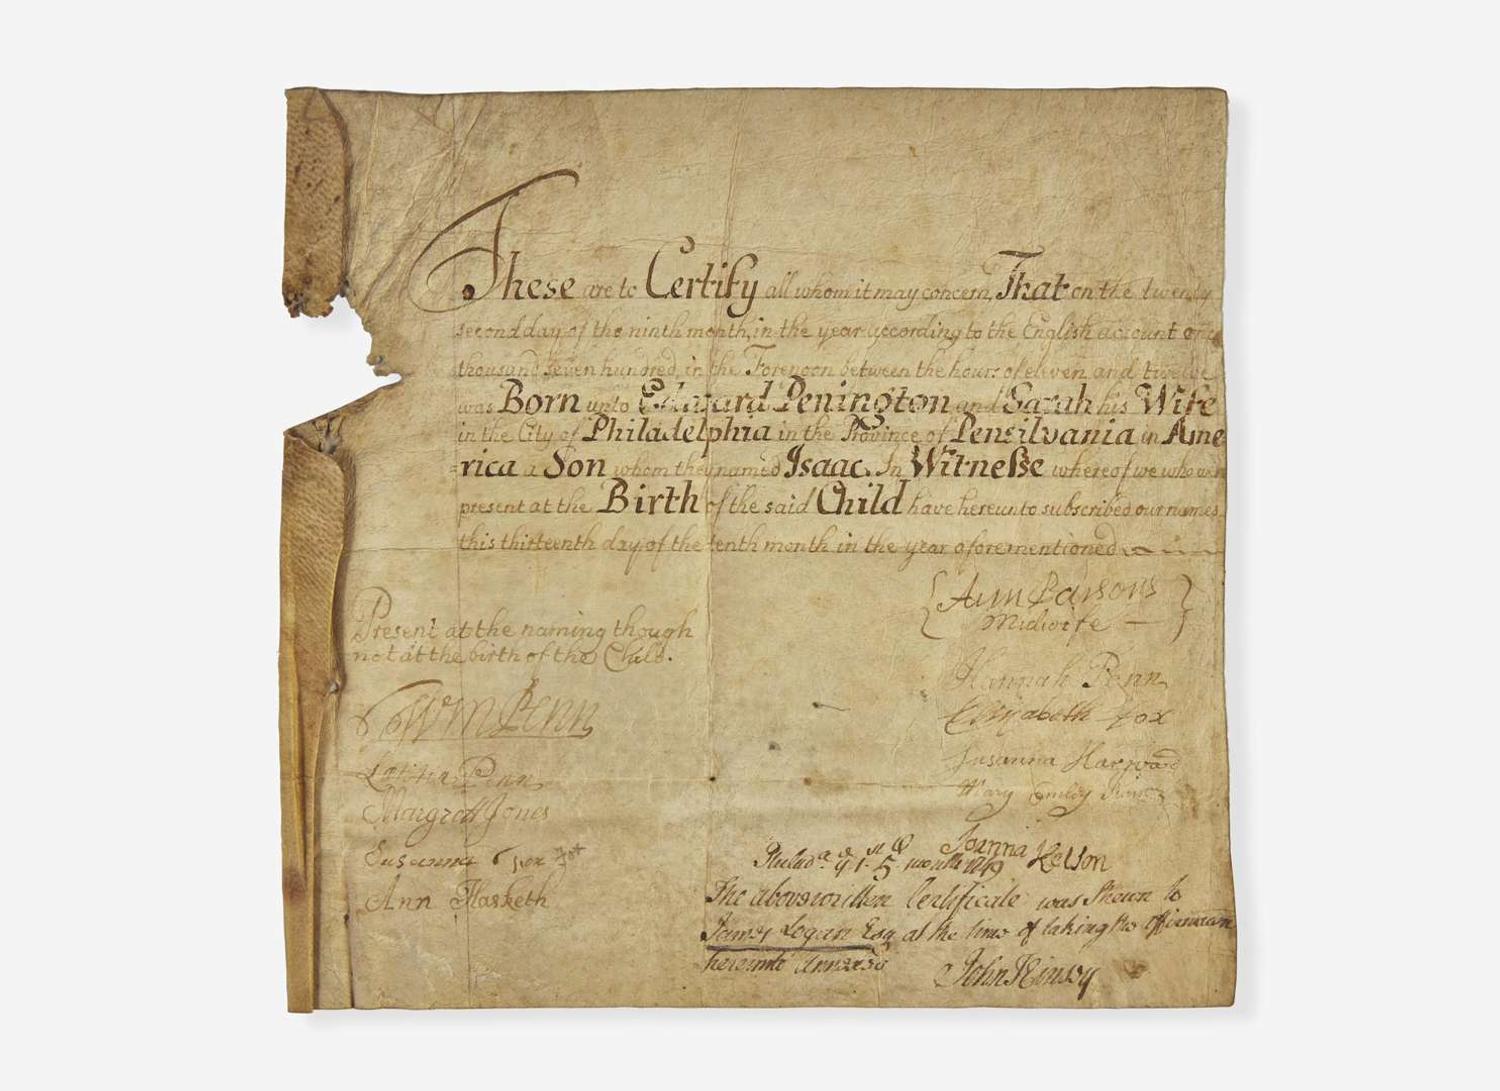 These are to Certify all whom it may concern, That on the twenty
second day of the ninth month, in the year according to the English account one
thousand seven hundred, in the Forenoon between the hours of eleven and twelve
was Born unto Edward Penington and Sarah his Wife
in the City of Philadelphia in the Province of Pensilvania in Ame
=rica a Son whom they named Isaac. In Witneſse whereof we who were
present at the Birth of the said Child have hereunto subscribed our names
this thirteenth day of the tenth month in the year aforementioned
Present at the naming though
not at the birth of the Child.
Wm Penn
Letitia Penn
Margrett Jones
Susanna Fox
Ann Hasketh
Ann Parsons
Midwife
Hannah Penn
Elizabeth Fox
Susanna Harwood
Mary
Joanna Kelson
Philada ye 1st 5 month
The abovewritten Certificate was Shewn to
James Logan Esq at the time of taking the Affirmation
hereunto Annexed
John Kinsey